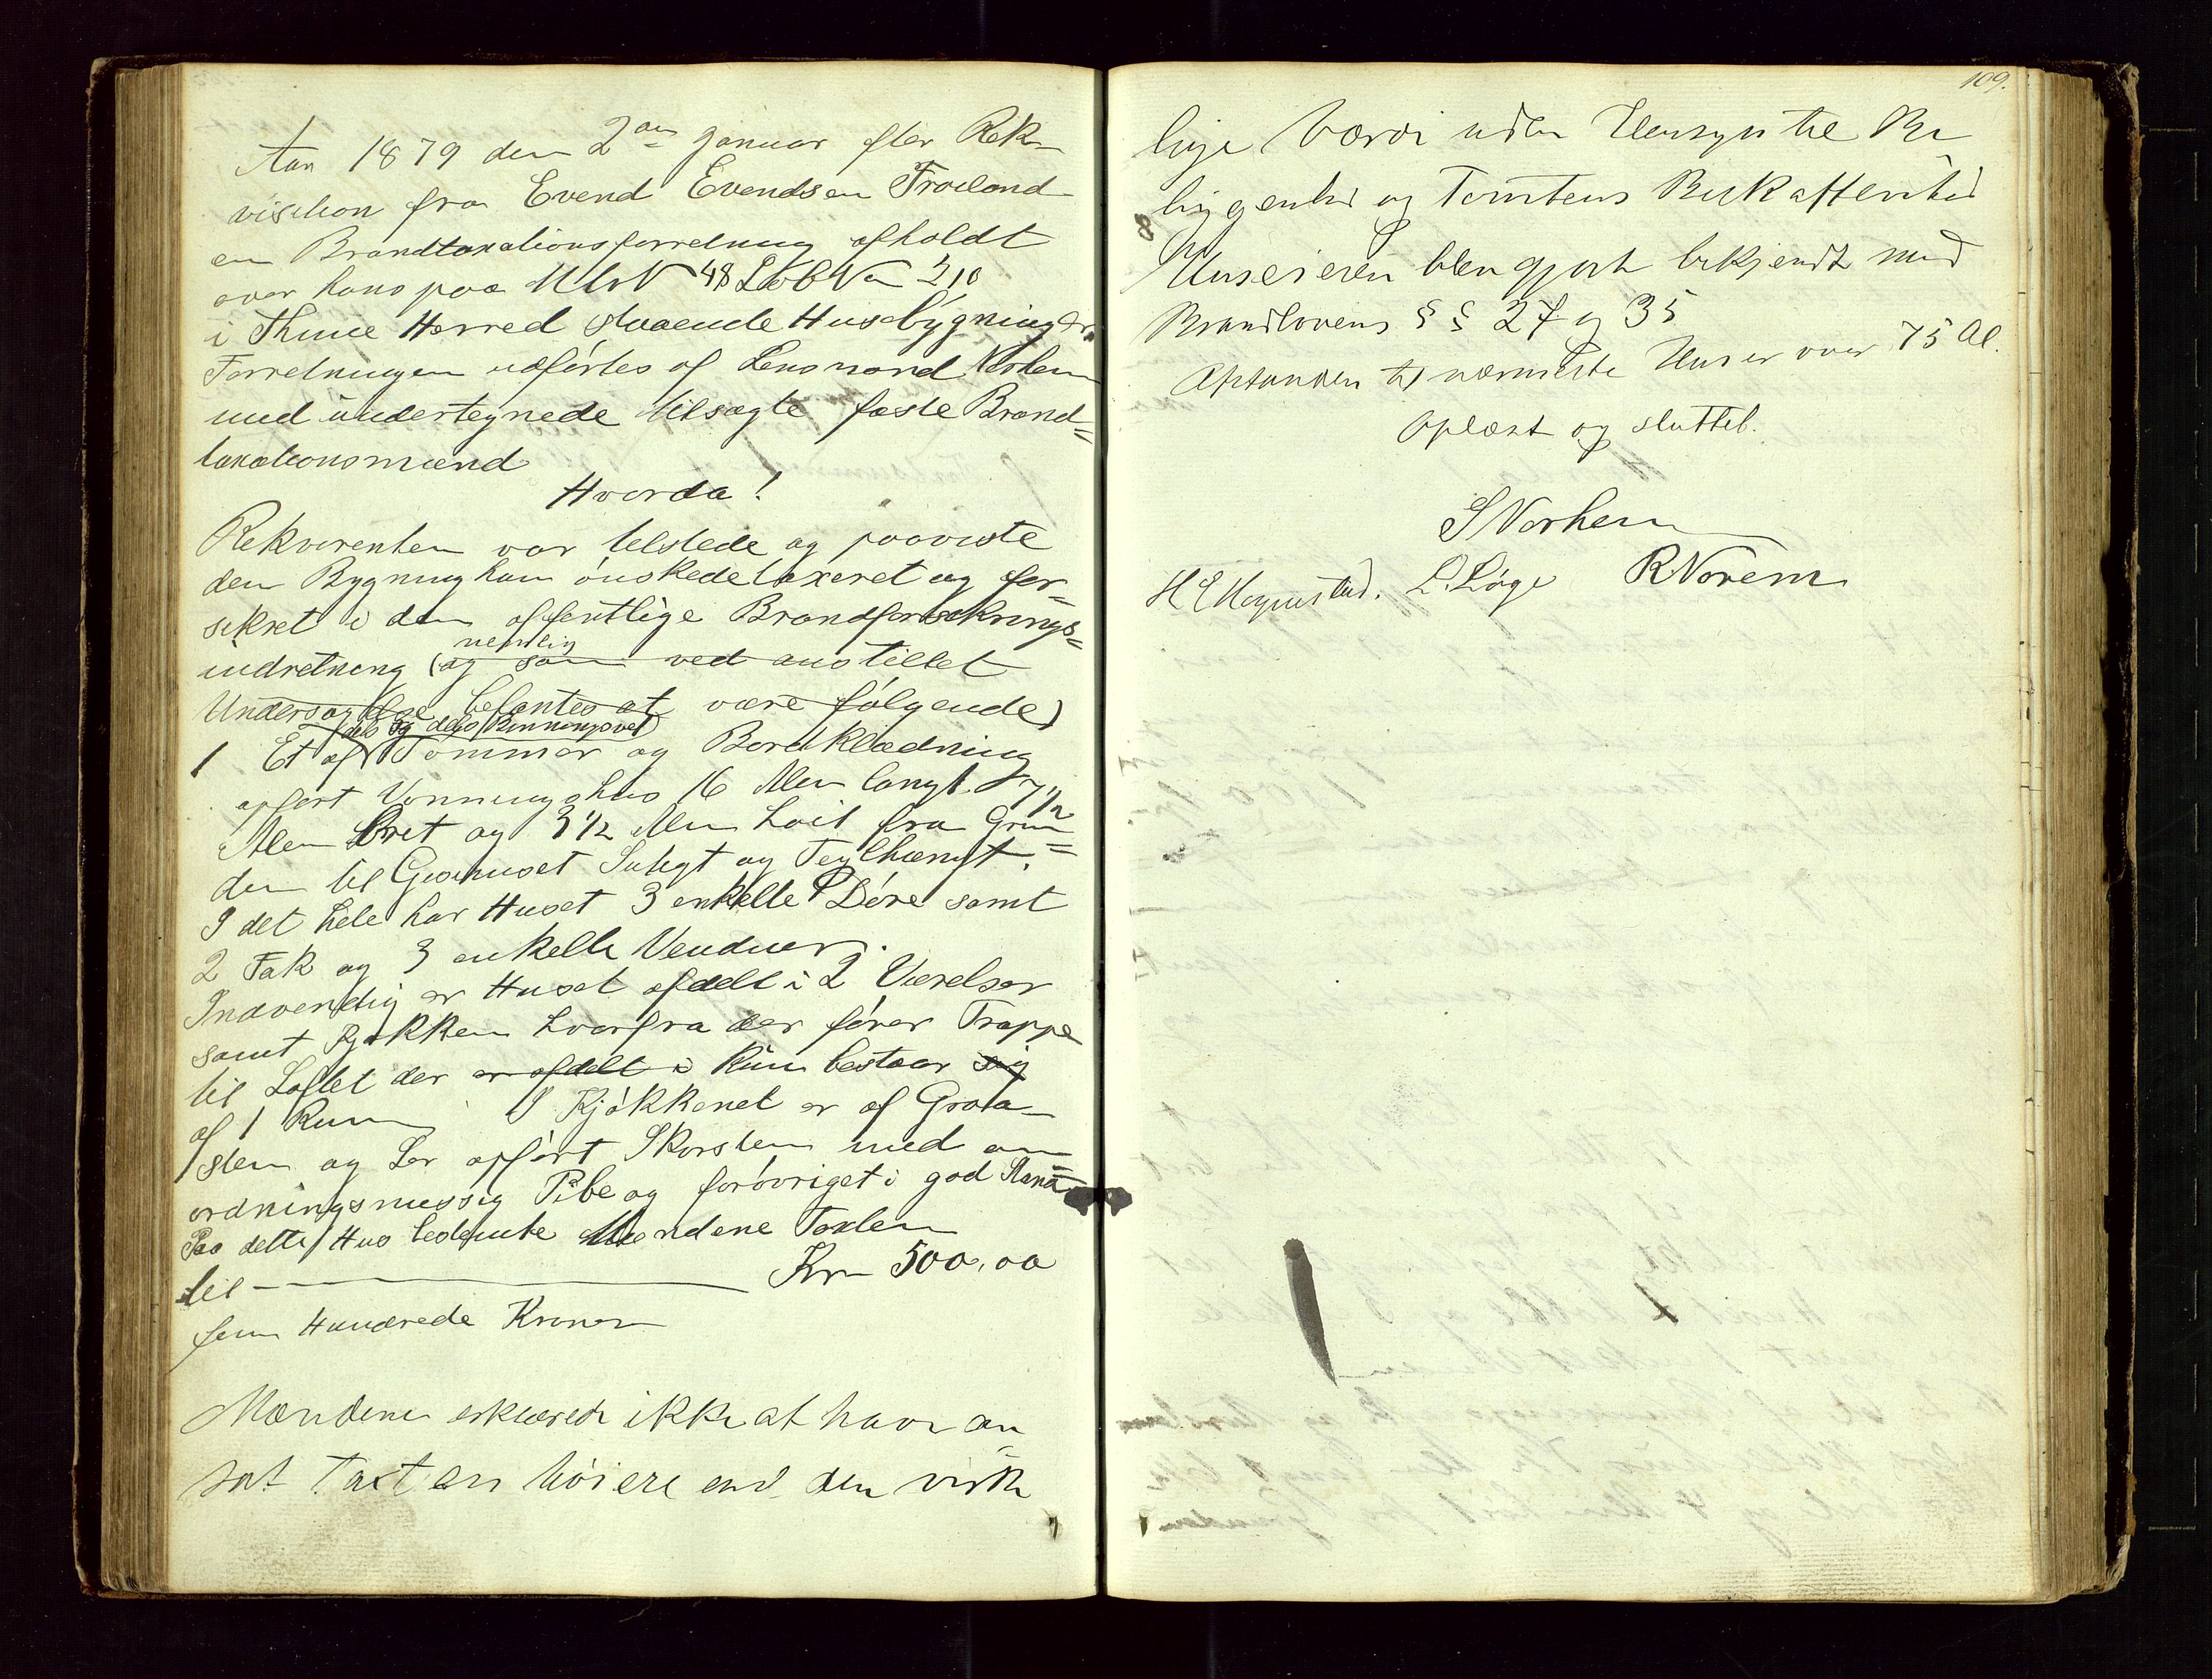 Aar 1879 den 2den Januar efter Rek-
visition fra Evend Evendsen Froiland
en Brandtaxationsforretning afholdt
over hans paa M No 48 Løb No 210
i Thime Herred staaende Husebygninger.
Forretningen udførtes af Lensmand Norhem
med undertegnede tilsagte faste Brand=
taxationsmænd
Hvorda!
Rekvirenten var tilstede og paaviste
den Bygning han ønskede taxeret og for-
sikret i den offentlige Brandforsikrings=
nemlig
indretning (og som ved anstillet
Undersøgelse befantes at være følgende)
dels og dels Binningsverk
1 Et af Tømmer og Bordklædning
opført Vonningshus 16 Alen langt 7 1/2
Alen bret og 3 1/2 Alen høit fra Grun=
den til Gesimset Sutagt og Teglhængt.
I det hele har Huset 3 enkelte Døre samt
2 Fak og 3 enkelte Venduer.
Indvendig er Huset afdelt i 2 Værelser
samt Kjøkken hvorfra der fører Trappe
til Loftet der er afdelt i Kun bestaar sig
af 1 Rum I Kjøkkenet er af Graa-
sten og Ler opført Skorsten med an
ordningsmessig Pibe og forøvriget i god Stand
Paa dette Hus bestemte Mændene Taxten
til - Kr 500,00
fem Hundrede Kroner
Mændene erklærede ikke at have an
sat Taxten høiere end den virke
109.
lige Værdi uden Hensyn til Be
liggenhed og Tomtens Beskaffenhed
Huseieren blev gjort bekjendt med
Brandlovens §§ 27 og 35
Afstanden til nærmeste Hus er over 75 Al.
Oplæst og sluttet.
S Norhem
H E Hognestad. L. Løge R Norem